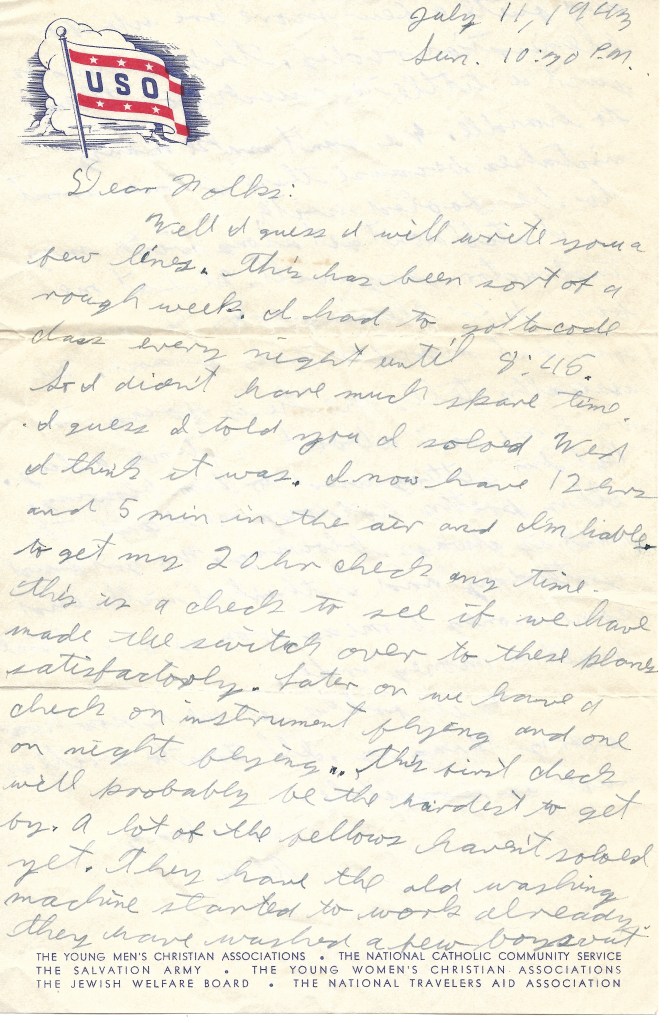 July 11, 1943
Sun. 10:30 P.M.
USO
Dear Folks:
Well I guess I will write you a
few lines. This has been sort of a
rough week. I had to got to code
class every night until 8:45.
So I didn't have much spare time.
I guess I told you I soloed Wed
I think it was. I now have 12 hrs
and 5 min in the air and I'm liable
to get my 20 hr check any time.
This is a check to see if we have
made the switch over to these planes
satisfactorly. Later on we have a
check on instrument flying and one
on night flying. This first check
will probably be the hardest to get
by. A lot of the fellows haven't soloed
yet. They have the old washing
machine started to work already.
They have washed a few boys out
THE YOUNG MEN'S CHRISTIAN ASSOCIATIONS • THE NATIONAL CATHOLIC COMMUNITY SERVICE
THE SALVATION ARMY • THE YOUNG WOMEN'S CHRISTIAN ASSOCIATIONS
THE JEWISH WELFARE BOARD • THE NATIONAL TRAVELERS AID ASSOCIATION